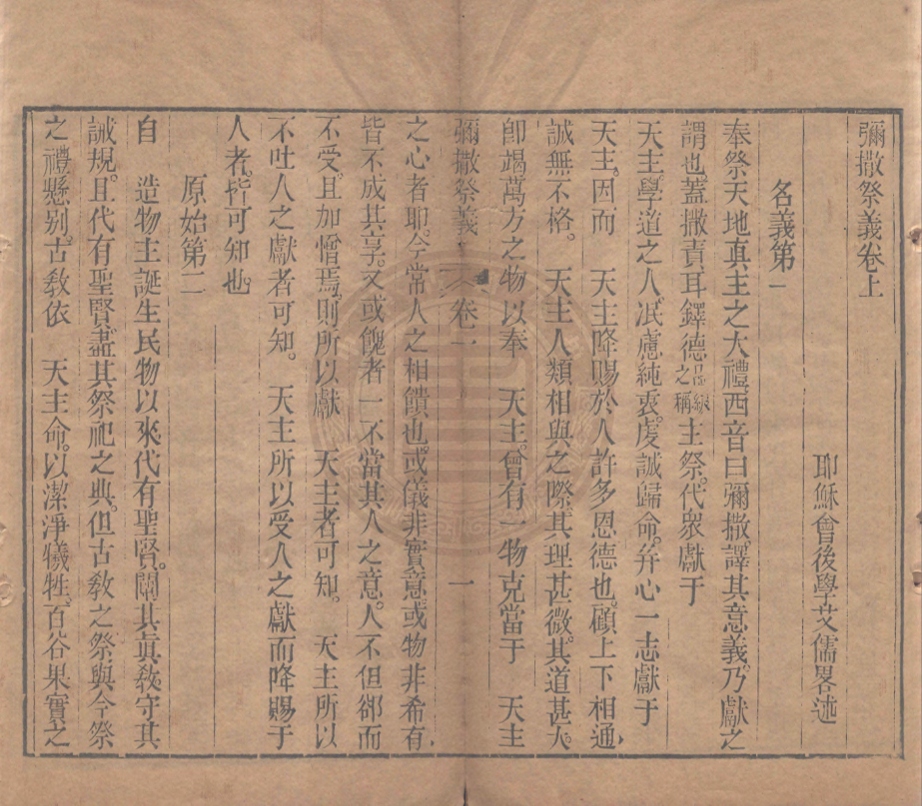 彌撒祭義卷上
耶穌會後學艾儒畧述
名義第一
奉祭天地真主之大禮。西音曰彌撒。譯其意義。乃獻之
謂也。蓋撒責耳鐸德品級之稱主祭。代衆獻于
天主。學道之人。泯慮純衷。虔誠歸命。并心一志獻于
天主。因而　天主降賜於人許多恩德也。顧上下相通。
誠無不格。　天主人類相與之際。其理甚微。其道甚大。
卽竭萬方之物以奉　天主。曾有一物克當于　天主
彌撒祭義　卷一　一
之心者耶。今常人之相饋也。或儀非實意。或物非希有。
皆不成其享。又或餽者一不當其人之意。人不但郤而
不受。且加憎焉。則所以獻　天主者可知。　天主所以
不吐人之獻者可知。　天主所以受人之獻而降賜于
人者。皆可知也。
原始第二
自　造物主誕生民物以來。代有聖賢。闡其眞敎。守其
誡規。且代有聖賢。盡其祭祀之典。但古敎之祭與今祭
之禮懸別。古敎依　天主命。以潔淨犧牲。百谷果實之